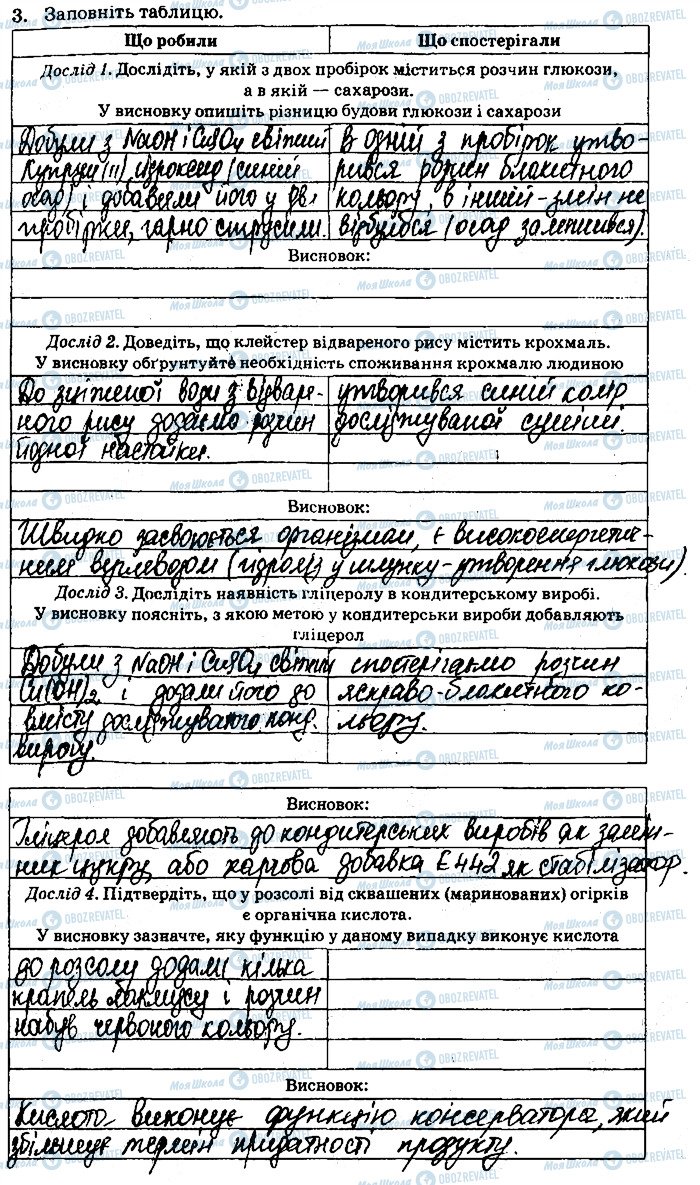 3. Заповніть таблицю.
Що робили Що спостерігали
Дослід 1. Дослідіть, у якій з двох пробірок міститься розчин глюкози,
а в якій — сахарози.
У висновку опишіть різницю будови глюкози і сахарози
Добули з NaOH і CuSO4 свіжий В одній з пробірок утво-
Купрум (II) гідроксид (синій рився розчин блакитного
осад) і добавили його у дві кольору, в іншій - змін не
пробірки, гарно струсили. відбулося (осад залишився).
Висновок:
Дослід 2. Доведіть, що клейстер відвареного рису містить крохмаль.
У висновку обґрунтуйте необхідність споживання крохмалю людиною
До зціженої води з відваре- утворився синій колір
ного рису додаємо розчин досліджуваної суміші.
йодної настойки.
Висновок:
Швидко засвоюється організмом, є високоенергетич-
ним вуглеводом (гідроліз у шлунку - утворення глюкози).
Дослід 3. Дослідіть наявність гліцеролу в кондитерському виробі.
У висновку поясніть, з якою метою у кондитерськи вироби добавляють
гліцерол
Добули з NaOH і CuSO4 свіжий спостерігаємо розчин
Cu(OH)2 і додали його до яскраво-блакитного ко-
вмісту досліджуваного конд. льору.
виробу.
Висновок:
Гліцерол добавляють до кондитерських виробів як замін-
ник цукру, або харчова добавка Е442 як стабілізатор.
Дослід 4. Підтвердіть, що у розсолі від сквашених (маринованих) огірків
є органічна кислота.
У висновку зазначте, яку функцію у даному випадку виконує кислота
до розсолу додали кілька
крапель лакмусу і розчин
набув червоного кольору.
Висновок:
Кислота виконує функцію консерватора, який
збільшує термін придатності продукту.
МояШкола OBOZREVATEL